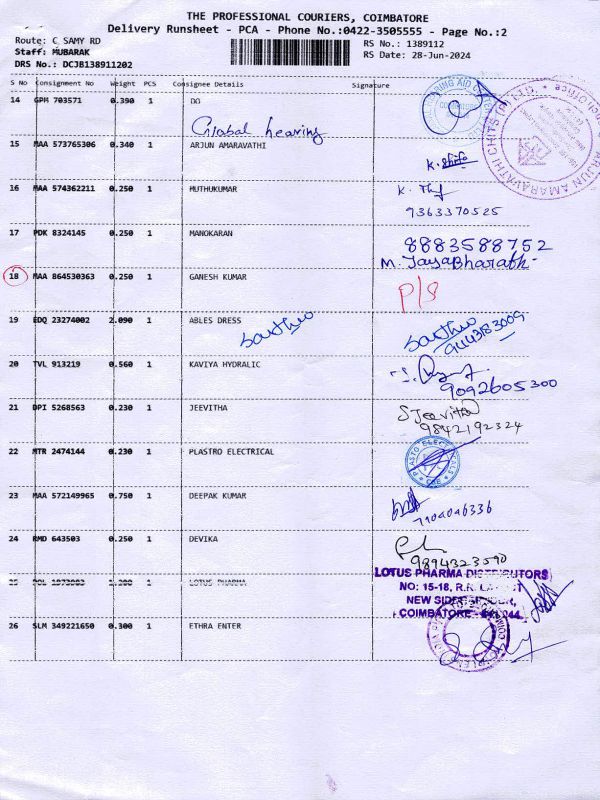 THE PROFESSIONAL COURIERS, COIMBATORE
Delivery Runsheet - PCA - Phone No.:0422-3505555 - Page No.:2
Route: C SAMY RD
Staff: MUBARAK
DRS No.: DCJB138911202
RS No.: 1389112
RS Date: 28-Jun-2024
S No Consignment No Weight PCS Consignee Details Signature
14 GPM 703571 0.390 1 DO
Global hearing
15 MAA 573765306 0.340 1 ARJUN AMARAVATHI
16 MAA 574362211 0.250 1 MUTHUKUMAR
9363370525
17 PDK 8324145 0.250 1 MANOKARAN 8883588752
M. JayaBharath
18 MAA 864530363 0.250 1 GANESH KUMAR P/S
19 EDQ 23274002 2.090 1 ABLES DRESS
9444383009
20 TVL 913219 0.560 1 KAVIYA HYDRALIC
9092605300
21 DPI 5268563 0.230 1 JEEVITHA S Jeevitha
9842192324
22 MTR 2474144 0.230 1 PLASTRO ELECTRICAL
23 MAA 572149965 0.750 1 DEEPAK KUMAR
24 BMD 643503 0.250 1 DEVIKA
9894323590
LOTUS PHARMA DISTRIBUTORS
NO: 15-16, R.R.
NEW
COIMBATORE
25 1.200 1 LOTUS PHARMA
26 SLM 349221650 0.300 1 ETHRA ENTER